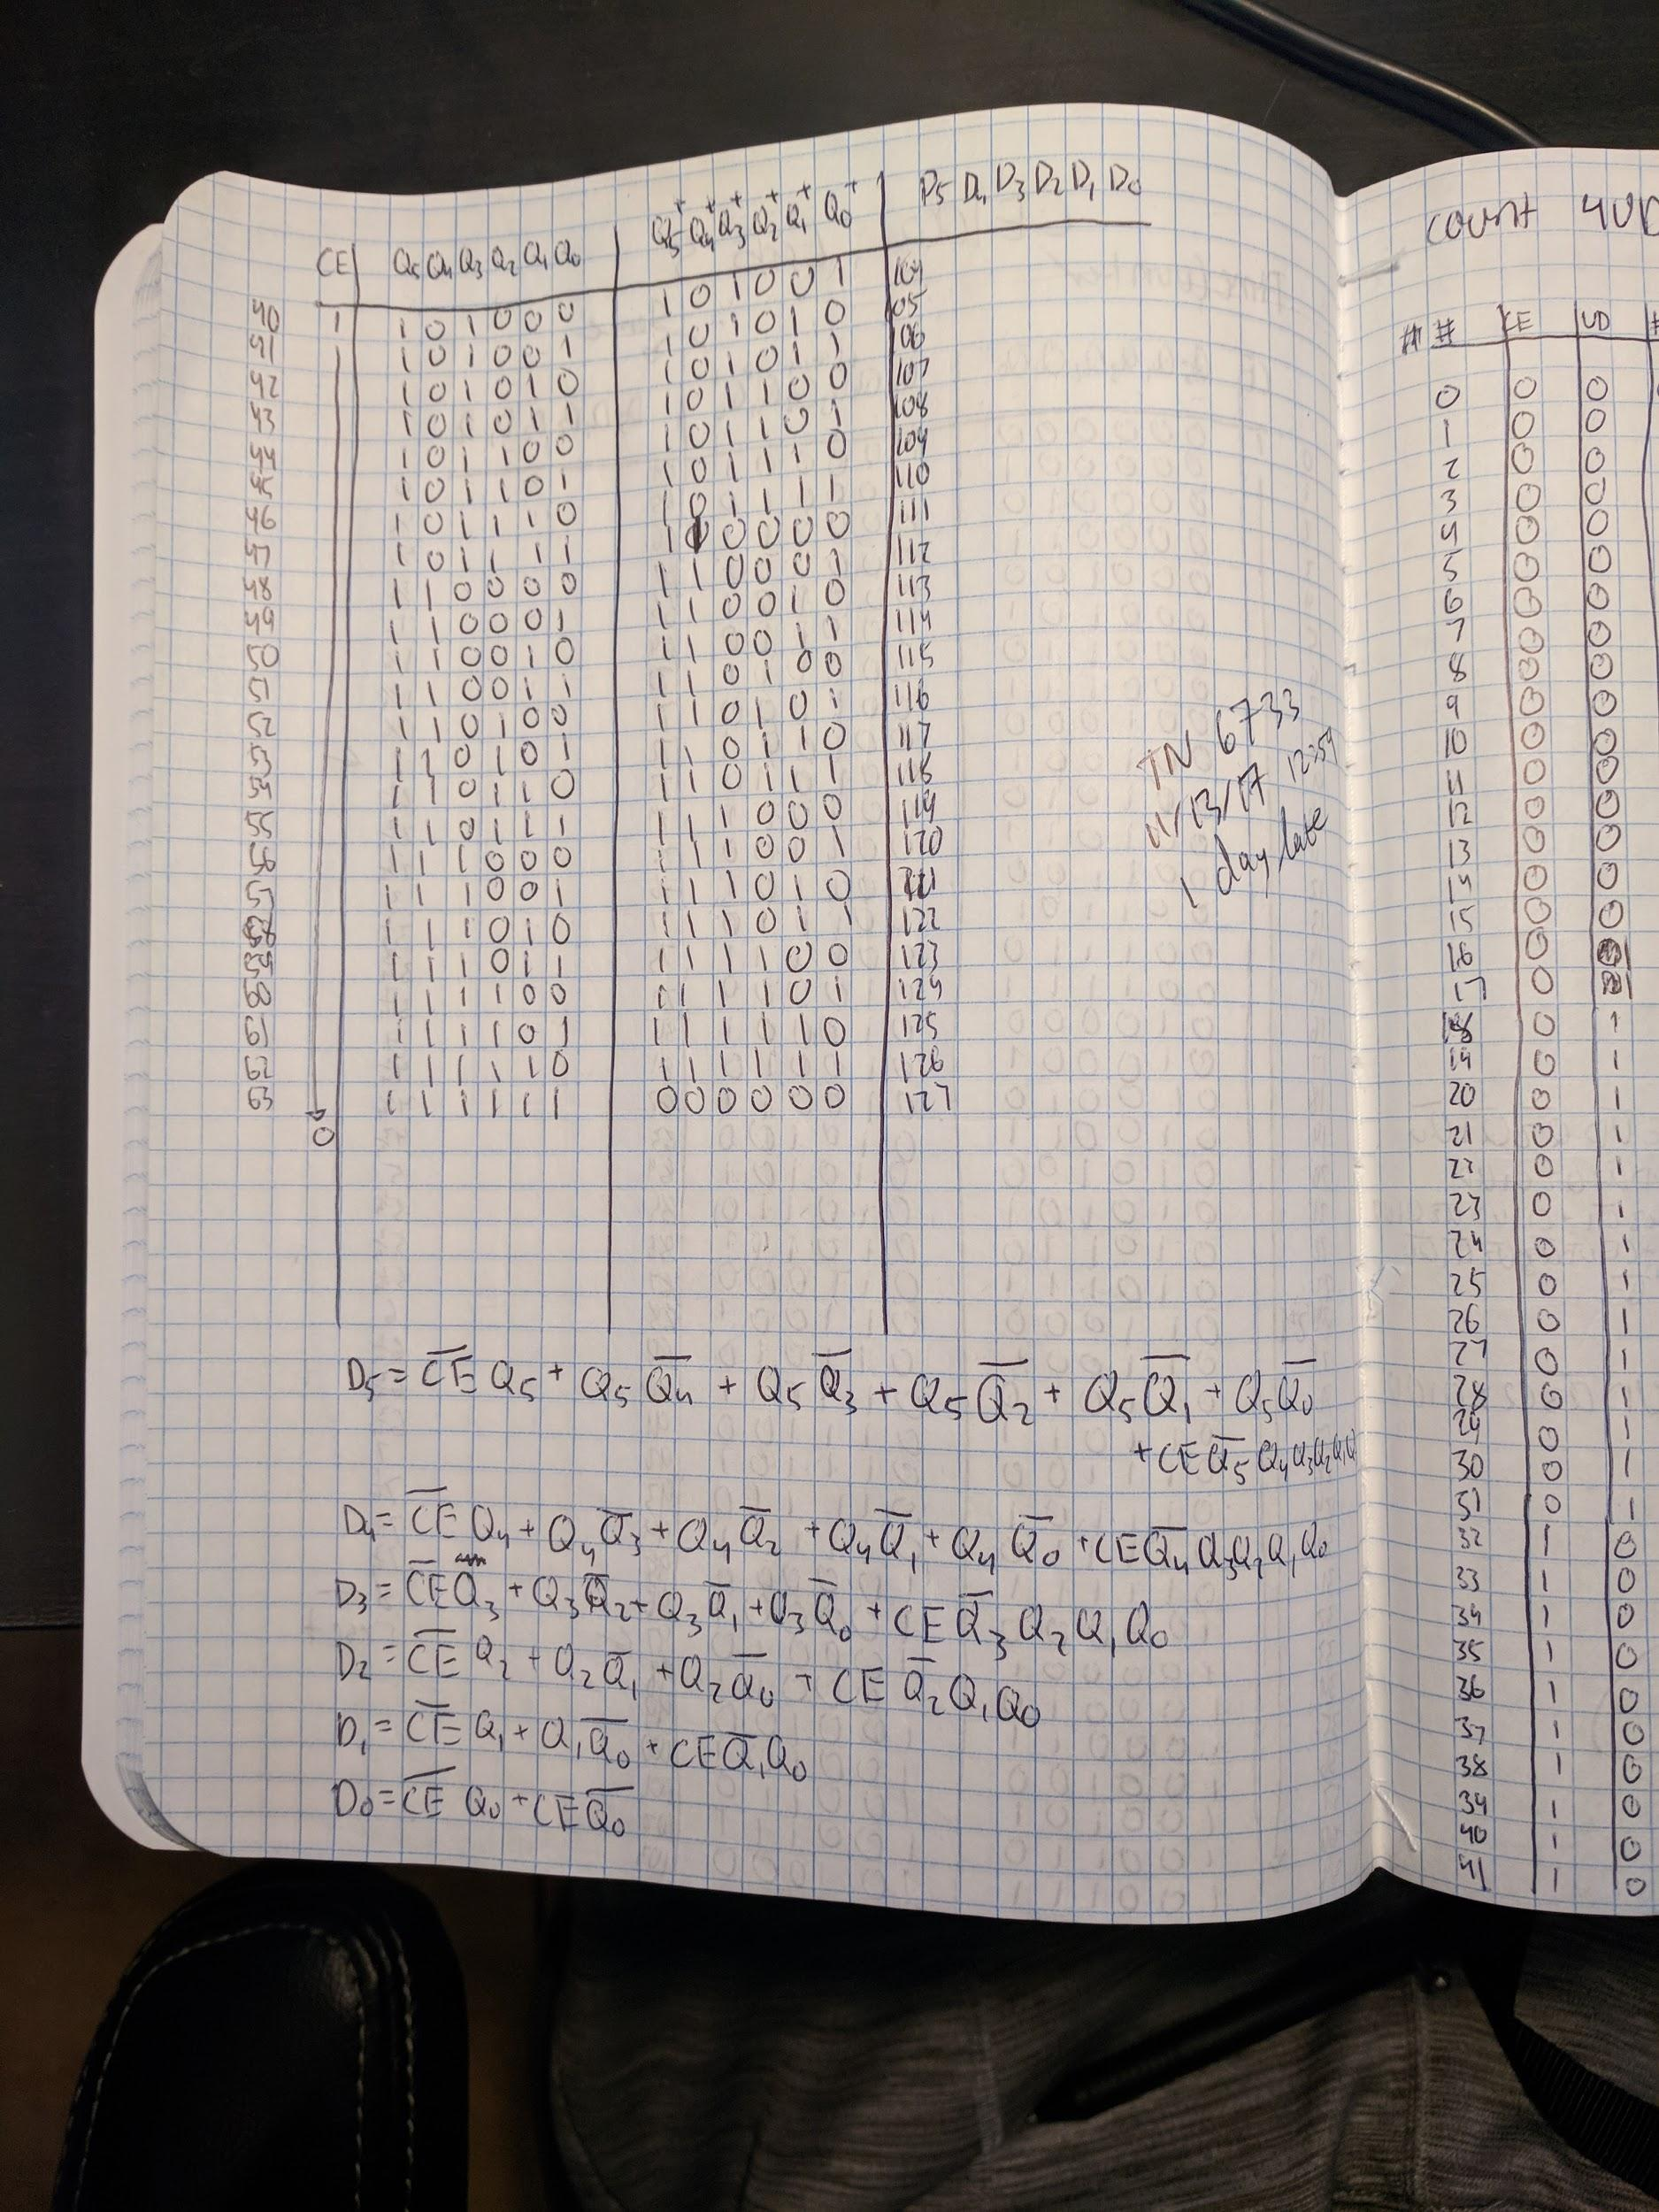 CE Q5 Q4 Q3 Q2 Q1 Q0 Q5+ Q4+ Q3+ Q2+ Q1+ Q0+ D5 D4 D3 D2 D1 D0
40 1 1 0 1 0 0 0 1 0 1 0 0 1 104
41 1 0 1 0 0 1 1 0 1 0 1 0 105
42 1 0 1 0 1 0 1 0 1 0 1 1 106
43 1 0 1 0 1 1 1 0 1 1 0 0 107
44 1 0 1 1 0 0 1 0 1 1 0 1 108
45 1 0 1 1 0 1 1 0 1 1 1 0 109
46 1 0 1 1 1 0 1 0 1 1 1 1 110
47 1 0 1 1 1 1 1 1 0 0 0 0 111
48 1 1 0 0 0 0 1 1 0 0 0 1 112
49 1 1 0 0 0 1 1 1 0 0 1 0 113
50 1 1 0 0 1 0 1 1 0 0 1 1 114
51 1 1 0 0 1 1 1 1 0 1 0 0 115
52 1 1 0 1 0 0 1 1 0 1 0 1 116
53 1 1 0 1 0 1 1 1 0 1 1 0 117
54 1 1 0 1 1 0 1 1 0 1 1 1 118
55 1 1 0 1 1 1 1 1 1 0 0 0 119
56 1 1 1 0 0 0 1 1 1 0 0 1 120
57 1 1 1 0 0 1 1 1 1 0 1 0 121
58 1 1 1 0 1 0 1 1 1 0 1 1 122
59 1 1 1 0 1 1 1 1 1 1 0 0 123
60 1 1 1 1 0 0 1 1 1 1 0 1 124
61 1 1 1 1 0 1 1 1 1 1 1 0 125
62 1 1 1 1 1 0 1 1 1 1 1 1 126
63 1 1 1 1 1 1 0 0 0 0 0 0 127
0
TN 6733
11/13/17 12:54
1 day late
D5 = C̅E̅ Q5 + Q5 Q̅4 + Q5 Q̅3 + Q5 Q̅2 + Q5 Q̅1 + Q5 Q̅0
+ CE Q̅5 Q4 Q3 Q2 Q1 Q
D4 = C̅E̅ Q4 + Q4 Q̅3 + Q4 Q̅2 + Q4 Q̅1 + Q4 Q̅0 + CE Q̅4 Q3 Q2 Q1 Q0
D3 = C̅E̅ Q3 + Q3 Q̅2 + Q3 Q̅1 + Q3 Q̅0 + CE Q̅3 Q2 Q1 Q0
D2 = C̅E̅ Q2 + Q2 Q̅1 + Q2 Q̅0 + CE Q̅2 Q1 Q0
D1 = C̅E̅ Q1 + Q1 Q̅0 + CE Q̅1 Q0
D0 = C̅E̅ Q0 + CE Q̅0
COUNT 4UD
# # CE UD #
0 0 0
1 0 0
2 0 0
3 0 0
4 0 0
5 0 0
6 0 0
7 0 0
8 0 0
9 0 0
10 0 0
11 0 0
12 0 0
13 0 0
14 0 0
15 0 0
16 0
17 0
18 0 1
19 0 1
20 0 1
21 0 1
22 0 1
23 0 1
24 0 1
25 0 1
26 0 1
27 0 1
28 0 1
29 0 1
30 0 1
31 0 1
32 1 0
33 1 0
34 1 0
35 1 0
36 1 0
37 1 0
38 1 0
39 1 0
40 1 0
41 1 0